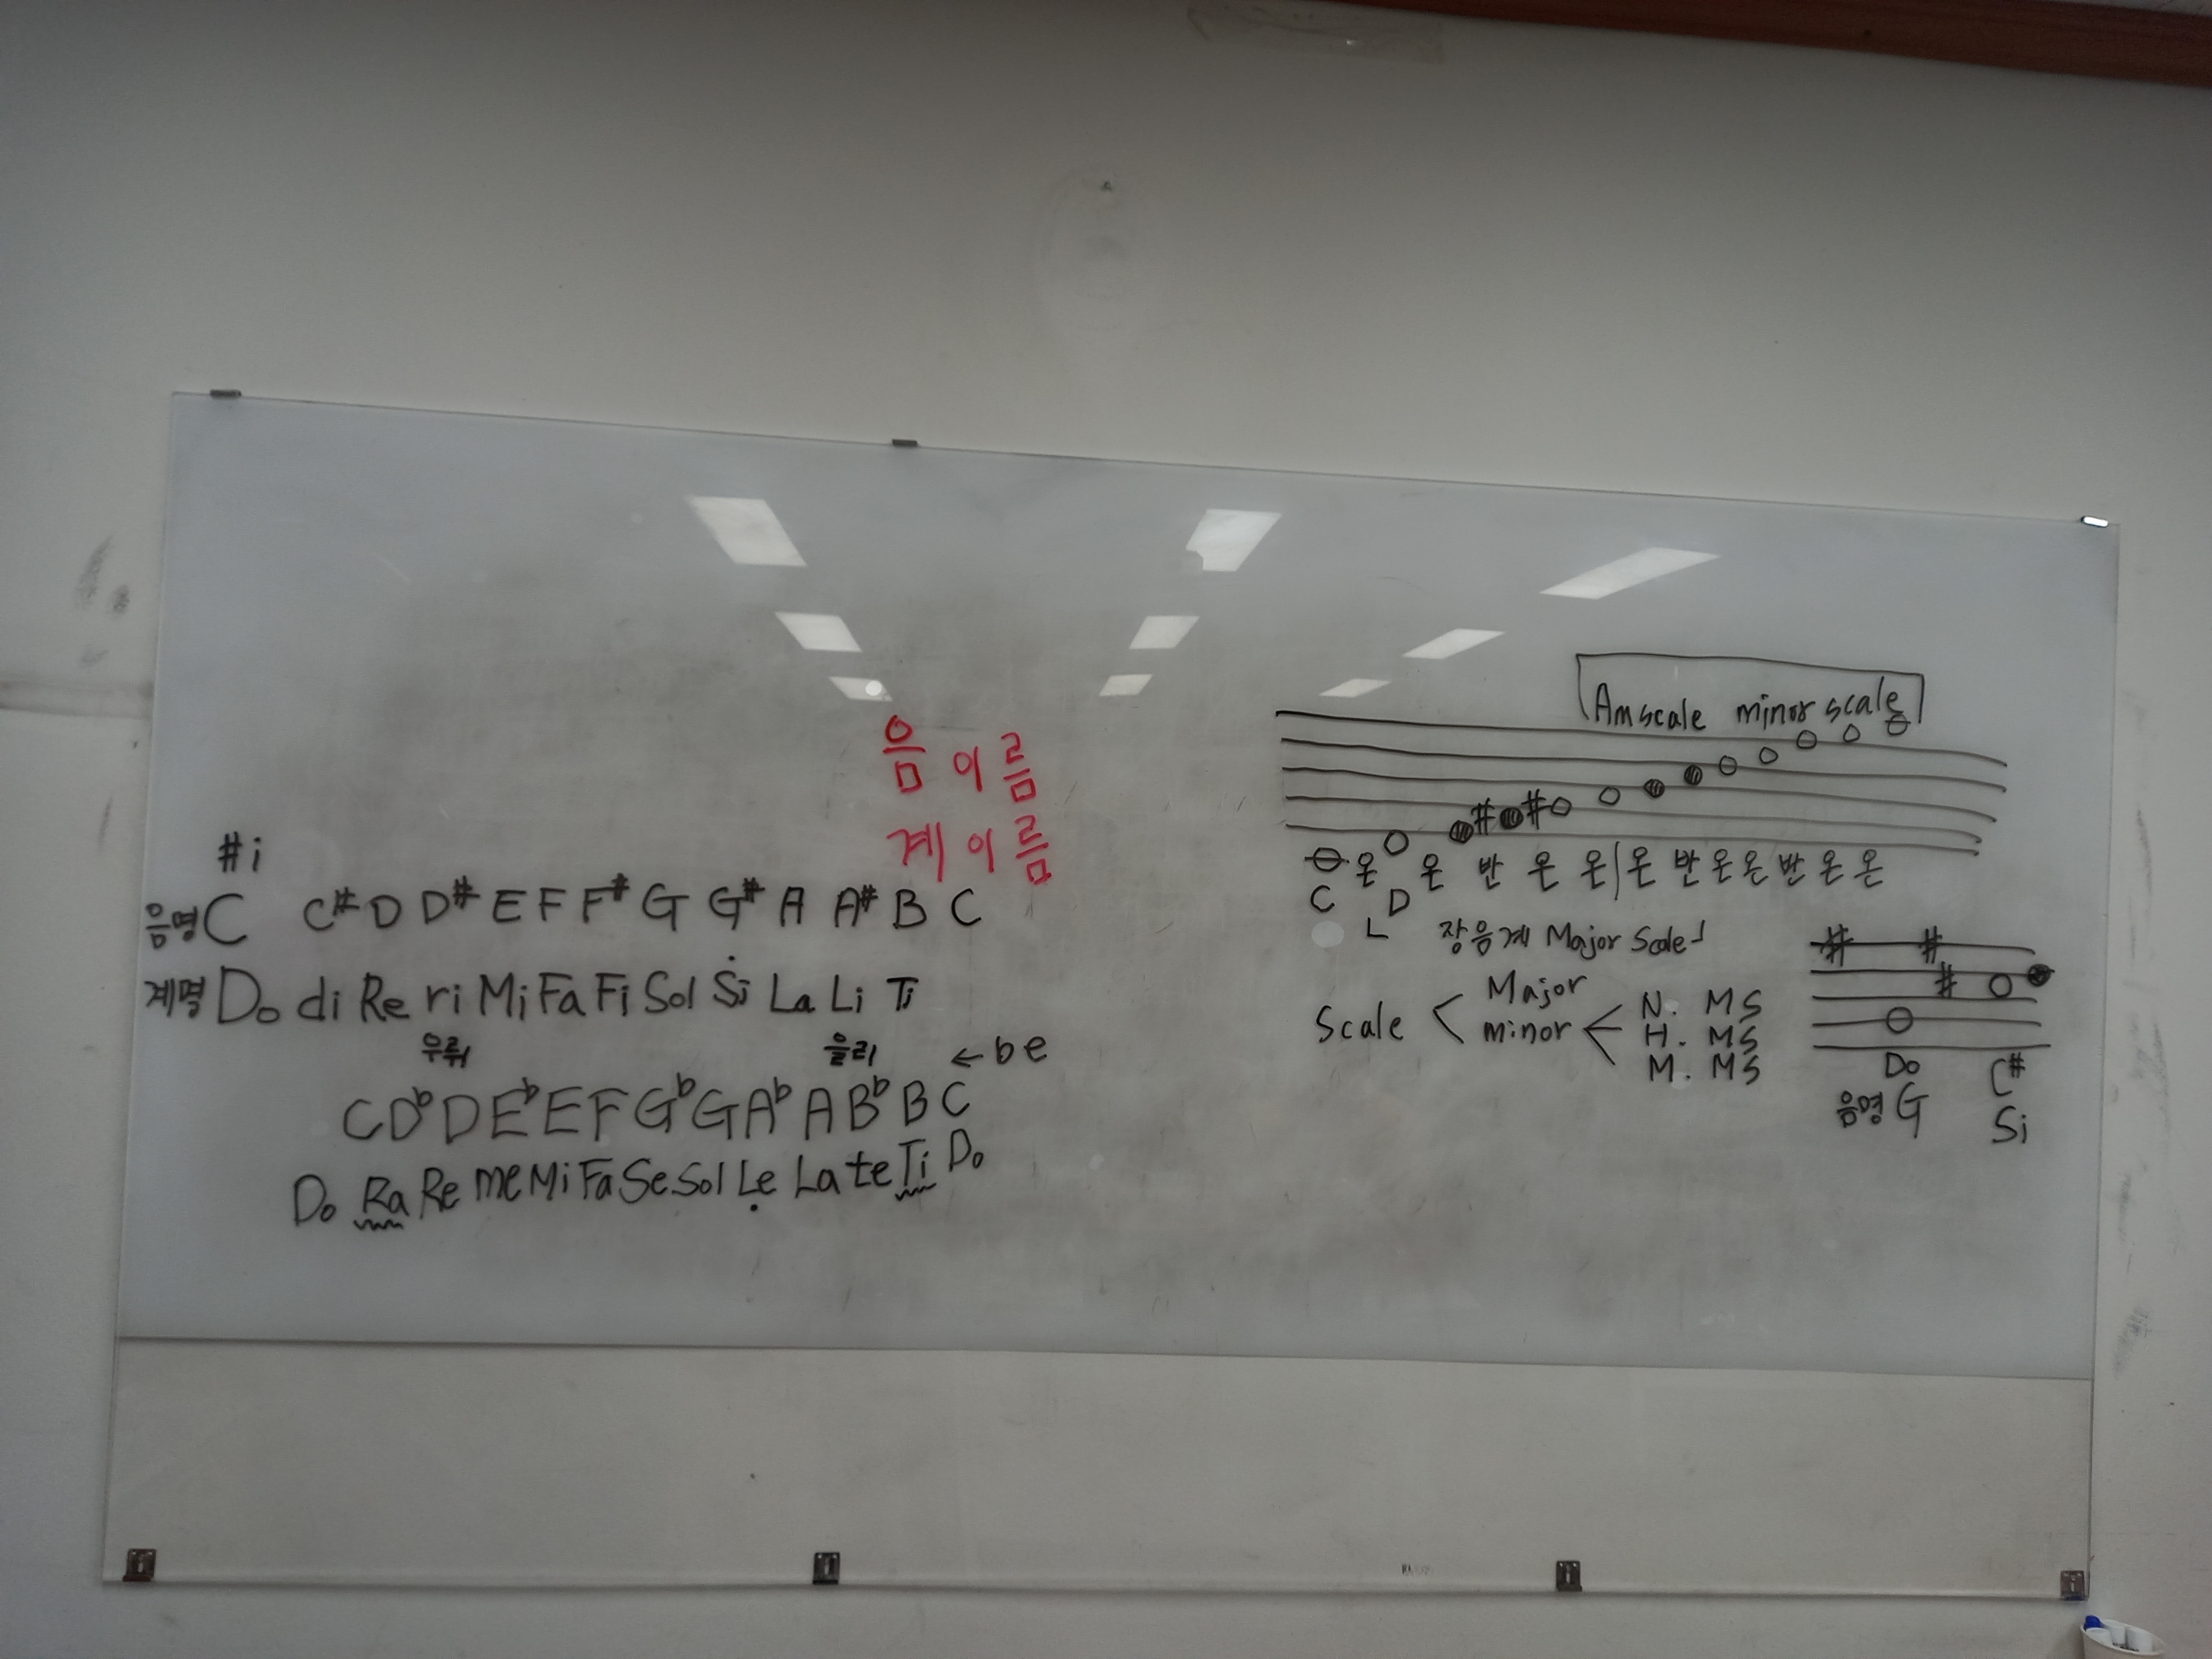 음 이름
계 이름
#i
음명 C C# D D# E F F# G G# A A# B C
계명 Do di Re ri Mi Fa Fi Sol Si La Li Ti
우뤼 을리 ← b e
C Db D Eb E F Gb G Ab A Bb B C
Do Ra Re me Mi Fa Se Sol Le La te Ti Do
Am scale minor scale
# #
온 온 반 온 온 온 반 온 온 반 온 온
C D
장음계 Major Scale
Scale < Major
minor < N. MS
H. MS
M. MS
# # #
Do C#
음명 G Si